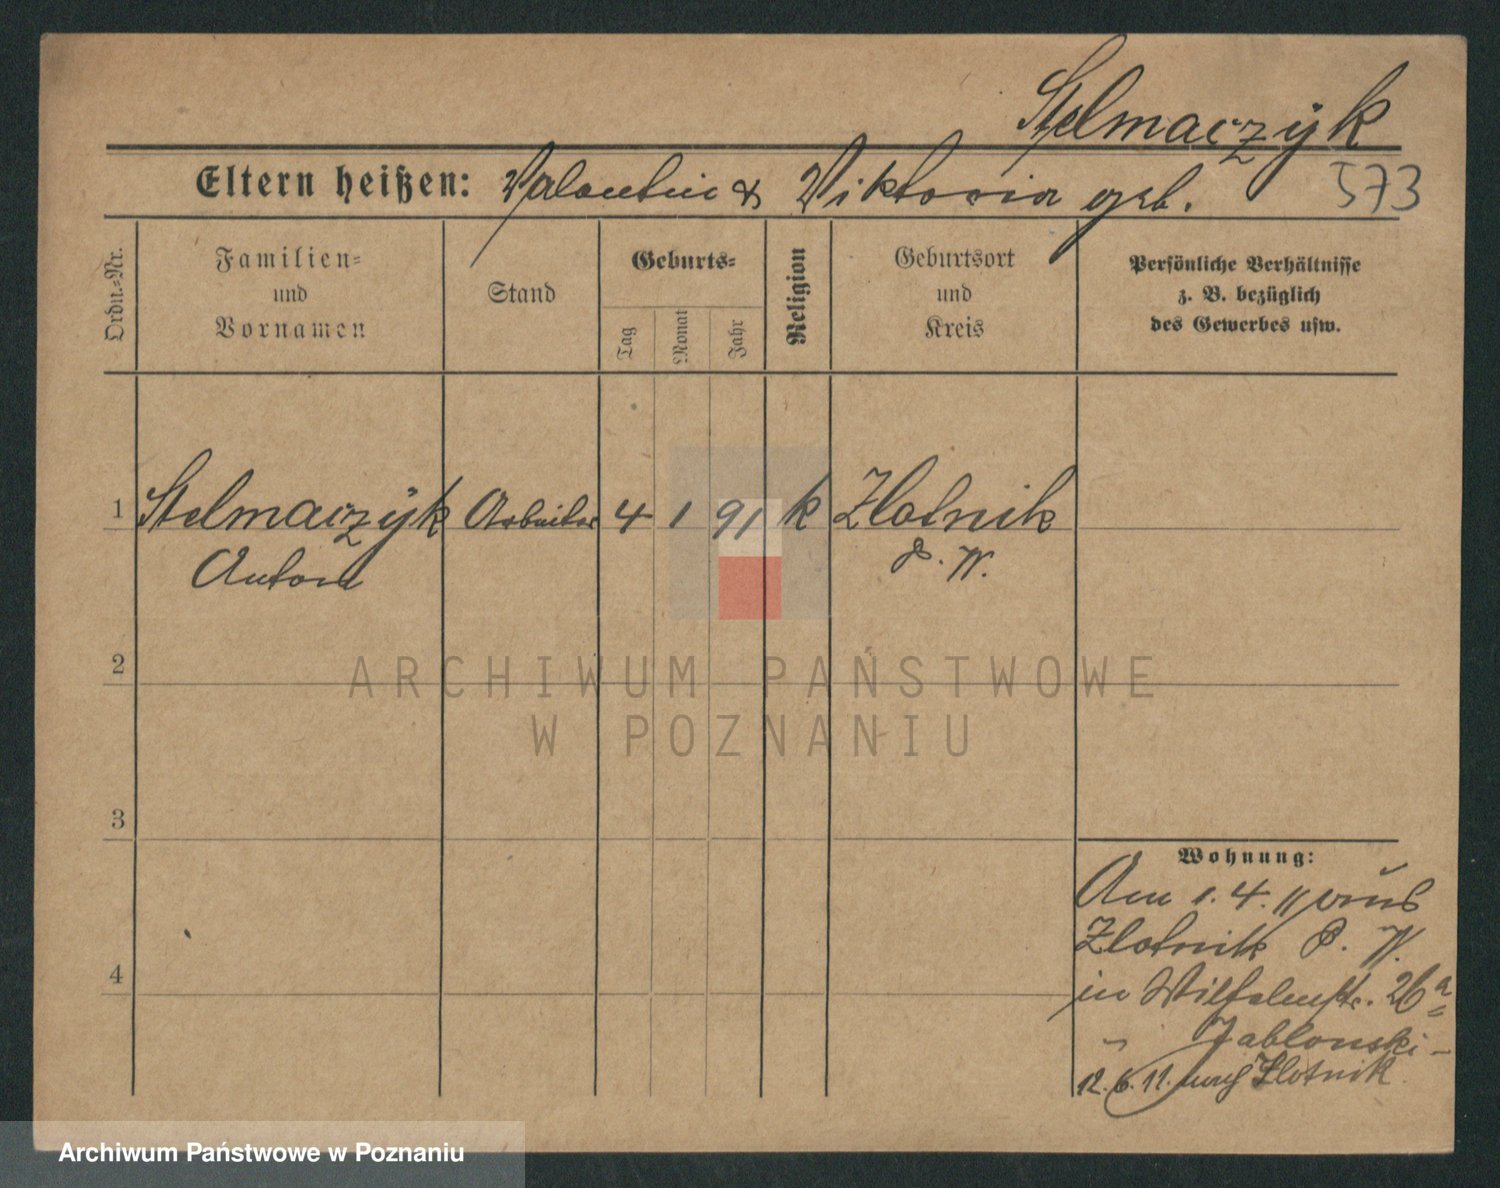 Stelmaczÿk
Eltern heißen: Valentin & Viktoria geb.
573
Ordn.-Nr.
Familien-
und
Vornamen
Stand
Geburts-
Tag
Monat
Jahr
Religion
Geburtsort
und
Kreis
Persönliche Verhältnisse
z. B. bezüglich
des Gewerbes usw.
1 Stelmaczÿk Arbeiter 4 1 91 k Zlotnik
Anton P. W.
2
3
4
Wohnung:
Am 1. 4. 11 aus
Zlotnik P. W.
in Wilhelmstr. 26a
" Jablonski-
12. 6. 11. nach Zlotnik
ARCHIWUM PAŃSTWOWE
W POZNANIU
Archiwum Państwowe w Poznaniu